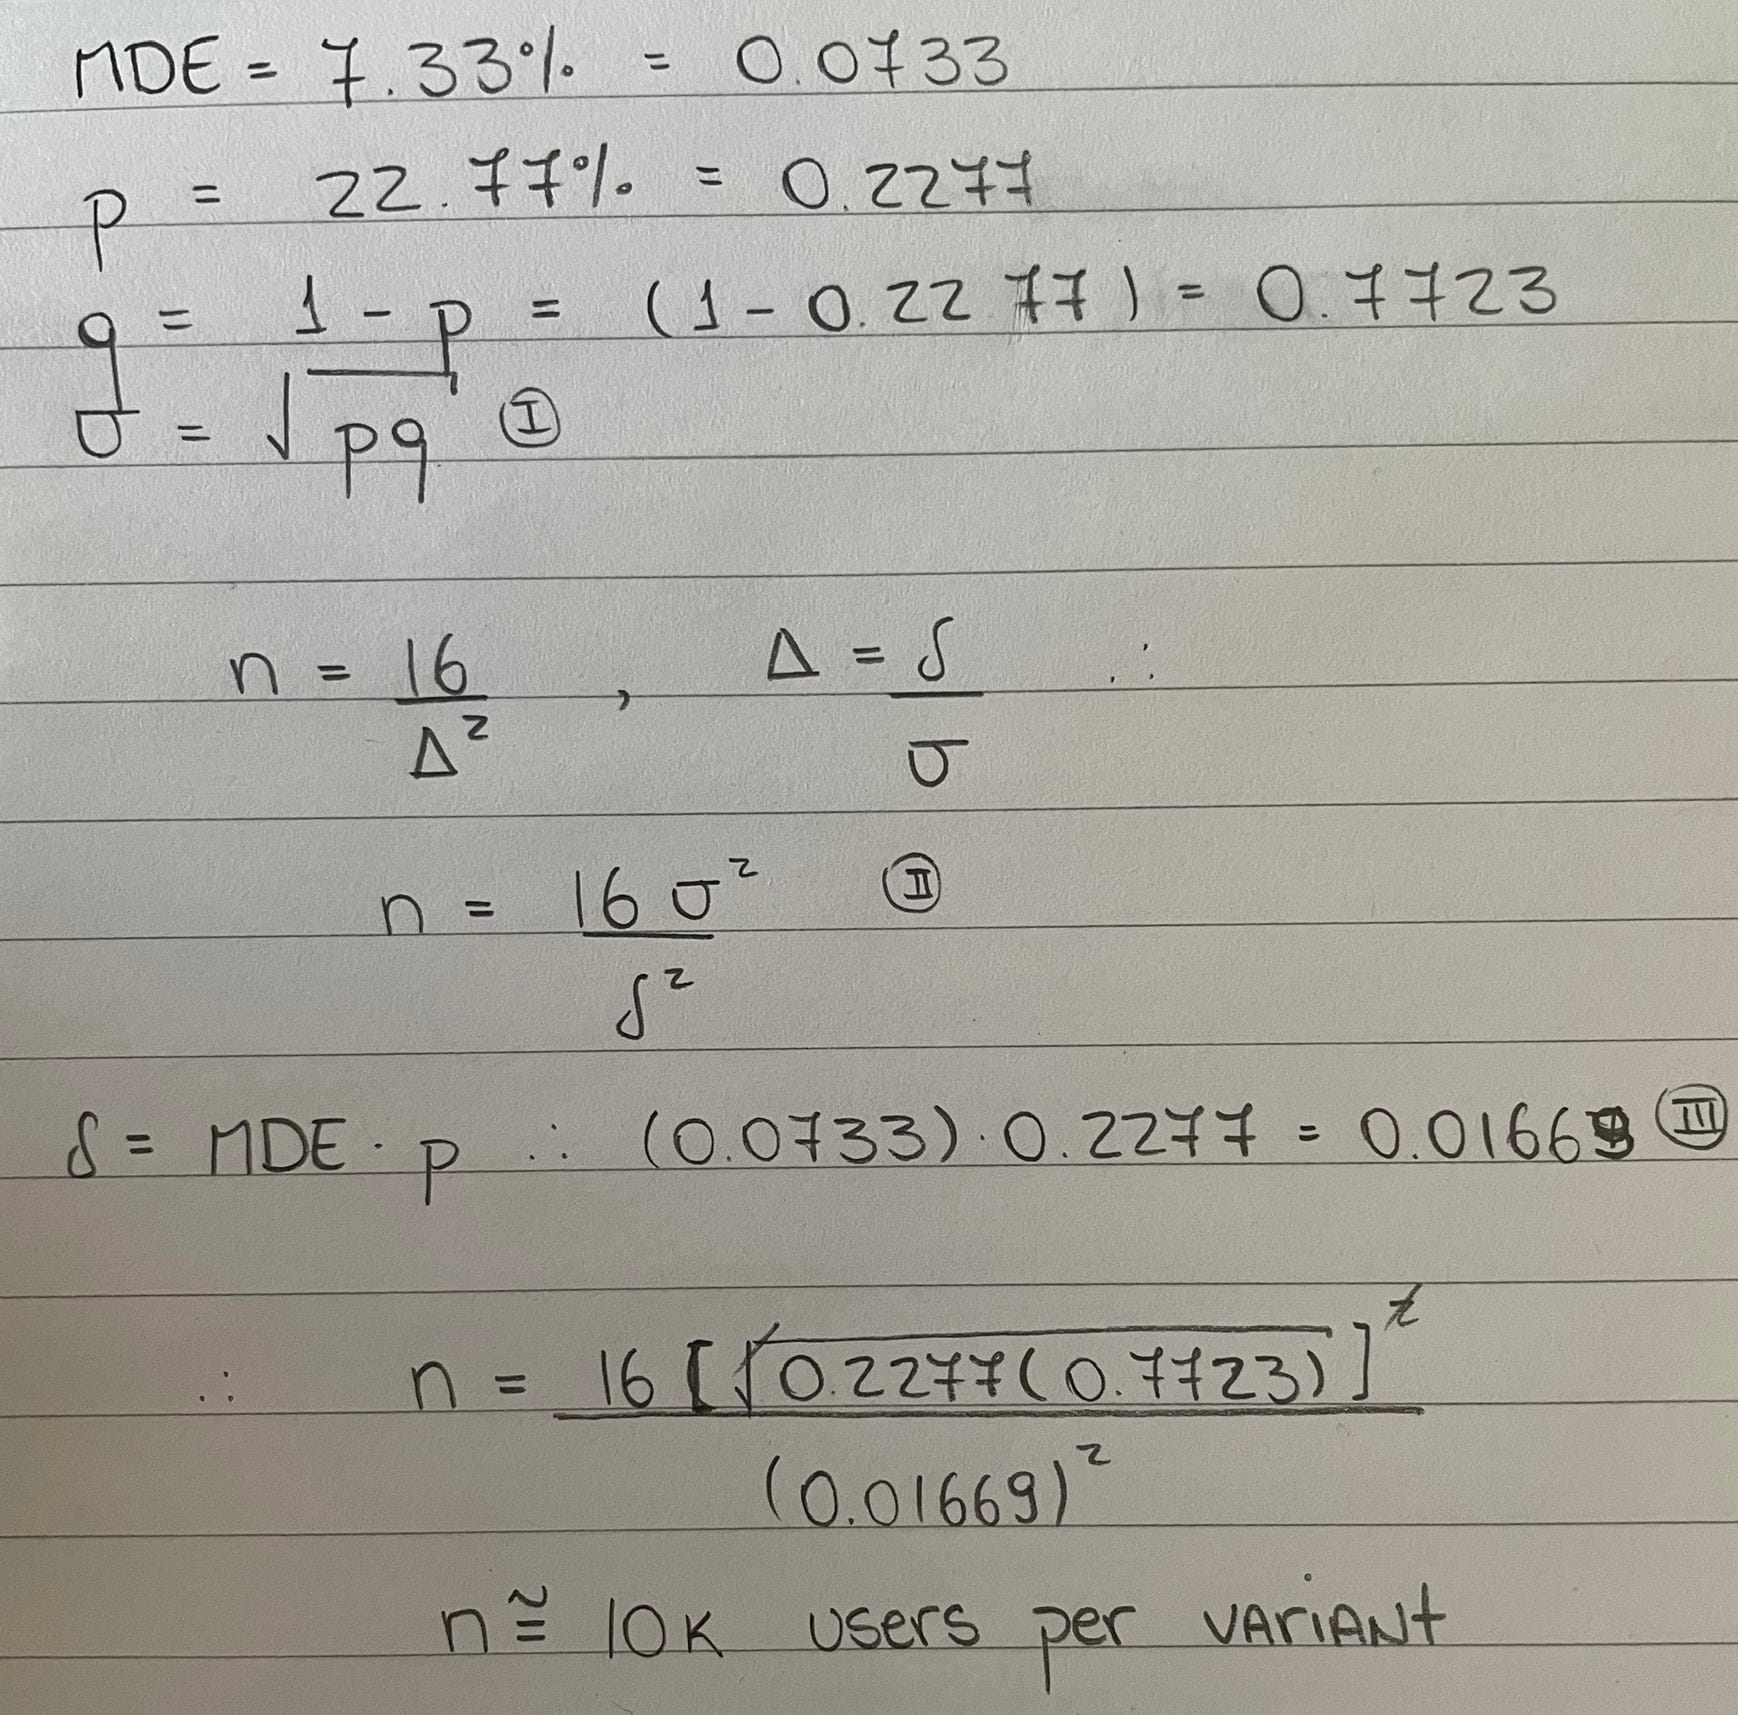 MDE = 7.33% = 0.0733
p = 22.77% = 0.2277
q = 1 - p = (1 - 0.2277) = 0.7723
σ = √pq Ⓘ
n = 16/Δ² , Δ = δ/σ ∴
n = 16σ²/δ² Ⓘ︎Ⓘ
δ = MDE · p ∴ (0.0733) · 0.2277 = 0.01669 III
∴ n = 16[√0.2277(0.7723)]²/(0.01669)²
n ≅ 10K users per variant